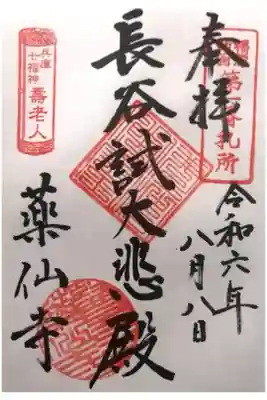 奉拝
令和六年
八月八日
長谷試大悲殿
兵庫
七福神
壽老人
薬仙寺